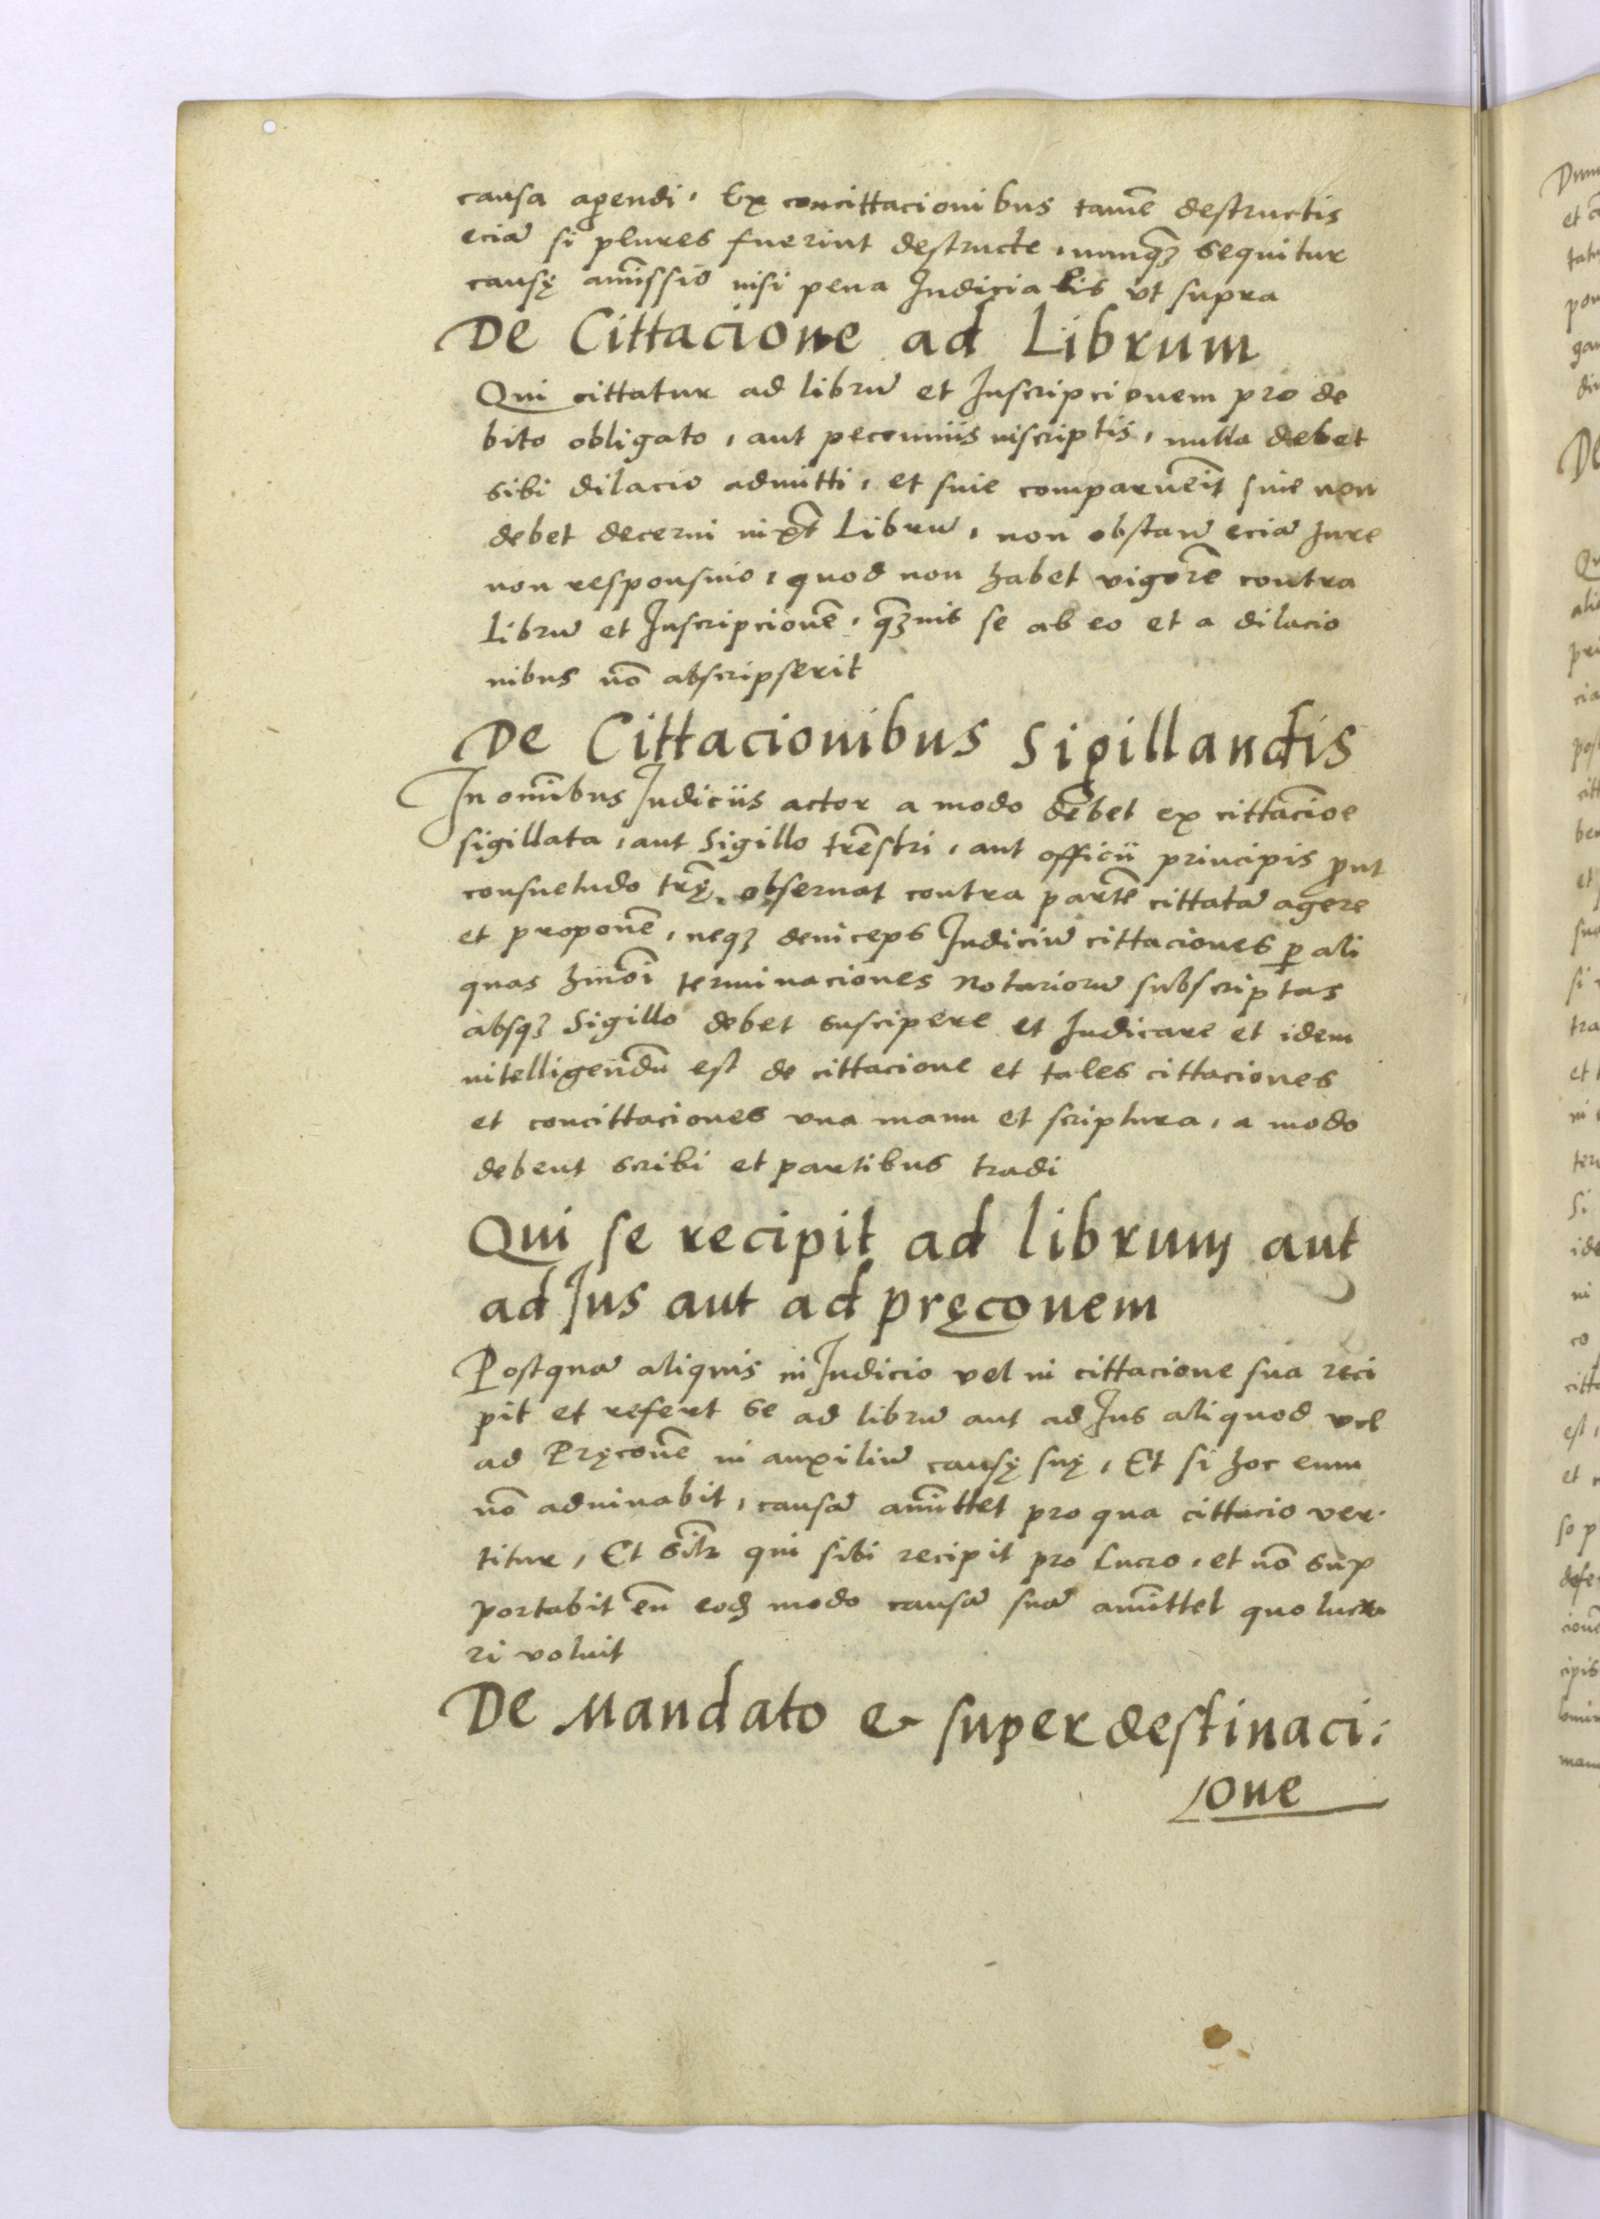 causa agendi, Ex concittacionibus tamē destructis
eciā si plures fuerint destructe, nunqꝫ sequitur
causę amissio nisi pena Judicialis vt supra
De Cittacione ad Librum
Qui cittatur ad librū et Inscripcionem pro de
bito obligato, aut pecunniis inscriptis, nulla debet
sibi dilacio admitti, et siue comparuerit siue non
debet decerni iuxta Librū, non obstan̄ eciā Jure
non responsiuo, quod non habet vigorē contra
Librū et Inscripcionē, qꝫuis se ab eo et a dilacio
nibus nō abscripserit
De Cittacionibus Sigillandis
In omībus Judiciis actor a modo debet ex cittacīoe
sigillata, aut Sigillo trēstri, aut officii principis ꝓut
consuetudo trę, obseruat contra partē cittatā agere
et proponē, neqꝫ deinceps Judiciū cittaciones ꝑ ali
quas hmōi terminaciones Notariorū subscriptas
absqꝫ Sigillo debet suscipere et Iudicare et idem
intelligendū est de cittacione et tales cittaciones
et concittaciones vna manu et scriptura, a modo
debent scribi et partibus tradi
Qui se recipit ad librum aut
ad Jus aut ad pręconem
Postquā aliquis in Judicio vel in cittacione sua reci
pit et refert se ad librū aut ad Jus aliquod vel
ad Pręconē in auxiliū causę suę, Et si hoc eum
nō adiuuabit, causā amīttet pro qua cittacio ver-
titur, Et sīlr qui sibi recipit pro Lucro, et nō sup
portabit eū eodꝫ modo causā suā amīttet quo lucra
ri voluit
De Mandato & superdestinaci:
one